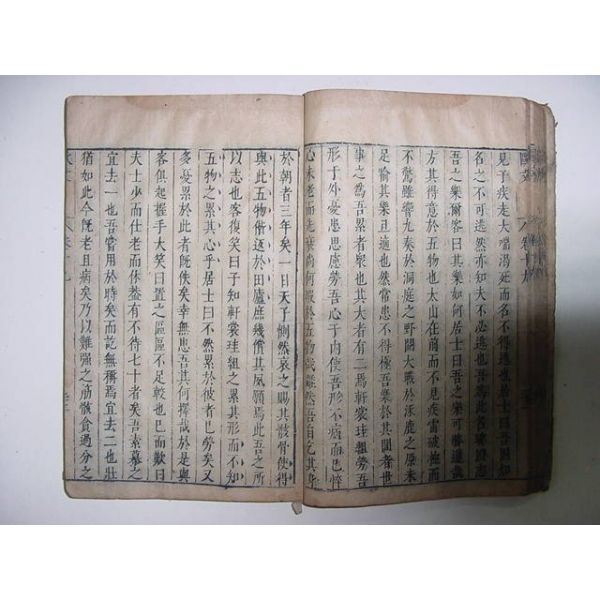 見子疾走大喘渴死而名不得逃也居士曰吾固知
名之不可逃然亦知夫不必逃也吾爲此名聊以志
吾之樂爾客曰其樂如何居士曰吾之樂可勝道哉
方其得意於五物也太山在前而不見疾雷破柱而
不驚雖響九奏於洞庭之野閱大戰於涿鹿之原未
足喻其樂且適也然常患不得極吾樂於其間者世
事之爲吾累者衆也其大者有二焉軒裳珪組勞吾
形于外憂患思慮勞吾心于内使吾形不病而已悴
心未老而先衰尚何暇於五物哉雖然吾自乞其身
於朝者三年矣一日天子惻然哀之賜其骸骨使得
與此五物偕返於田廬庶幾償其夙願焉此吾之所
以志也客復笑曰子知軒裳珪組之累其形而不知
五物之累其心乎居士曰不然累於彼者已勞矣又
多憂累於此者旣佚矣幸無患吾其何擇哉於是與
客俱起握手大笑曰置之區區不足較也已而歎曰
夫士少而仕老而休蓋有不待七十者矣吾素慕之
宜去一也吾嘗用於時矣而訖無稱焉宜去二也壯
猶如此今旣老且病矣乃以難強之筋骸貪過分之